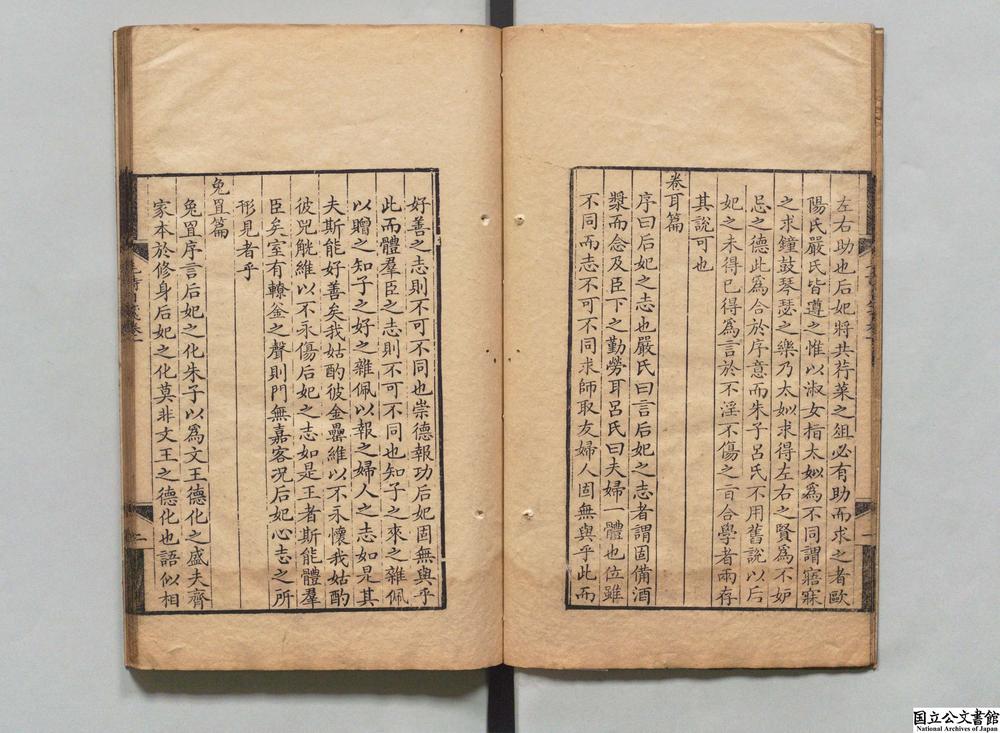 左右助也后妃將共荇菜之俎必有助而求之者歐
陽氏嚴氏皆遵之惟以淑女指太姒爲不同謂寤寐
之求鐘鼓琴瑟之樂乃太姒求得左右之賢爲不妒
忌之德此爲合於序意而朱子呂氏不用舊說以后
妃之未得已得爲言於不淫不傷之旨合學者兩存
其說可也
卷耳篇
序曰后妃之志也嚴氏曰言后妃之志者謂固備酒
漿而念及臣下之勤勞耳呂氏曰夫婦一體也位雖
不同而志不可不同求師取友婦人固無與乎此而
好善之志則不可不同也崇德報功后妃固無與乎
此而體羣臣之志則不可不同也知子之來之雜佩
以贈之知子之好之雜佩以報之婦人之志如是其
夫斯能好善矣我姑酌彼金罍維以不永懷我姑酌
彼兕觥維以不永傷后妃之志如是王者斯能體羣
臣矣室有轑釜之聲則門無嘉客况后妃心志之所
形見者乎
兔罝篇
兔罝序言后妃之化朱子以爲文王德化之盛夫齊
家本於修身后妃之化莫非文王之德化也語似相
二
国立公文書館
National Archives of Japan